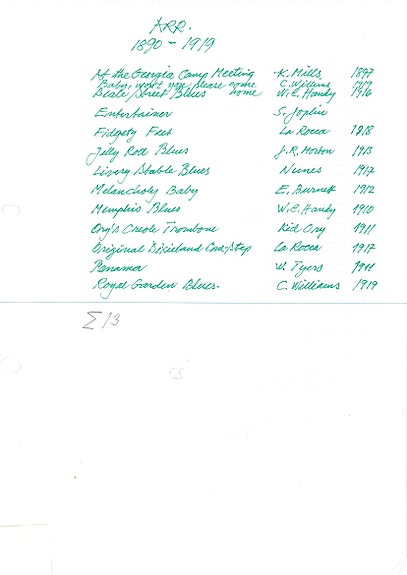 ARR.
1890 - 1919
At the Georgia Camp Meeting K. Mills 1897
Baby, won't you please come home C. Williams 1919
Beale Street Blues W.C. Handy 1916
Entertainer S. Joplin
Fidgety Feet La Rocca 1918
Jelly Roll Blues J.R. Morton 1915
Livery Stable Blues Nunes 1917
Melancholy Baby E. Burnett 1912
Memphis Blues W.C. Handy 1910
Ory's Creole Trombone Kid Ory 1911
Original Dixieland One-Step La Rocca 1917
Panama W. Tyers 1911
Royal Garden Blues. C. Williams 1919
Σ 13